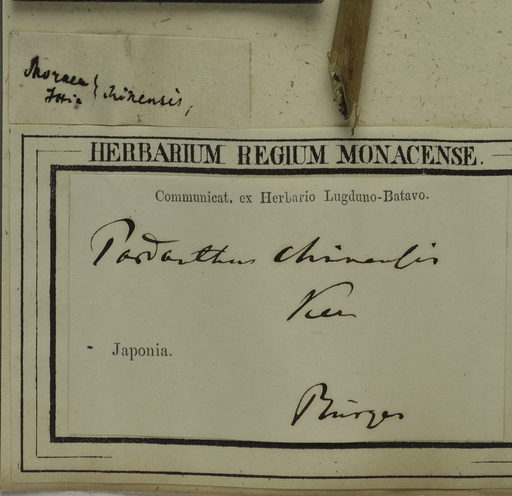 Moraea } chinensis,
Ixia
HERBARIUM REGIUM MONACENSE.
Communicat. ex Herbario Lugduno-Batavo.
Pardanthus chinensis
Ker
Japonia.
Bürger